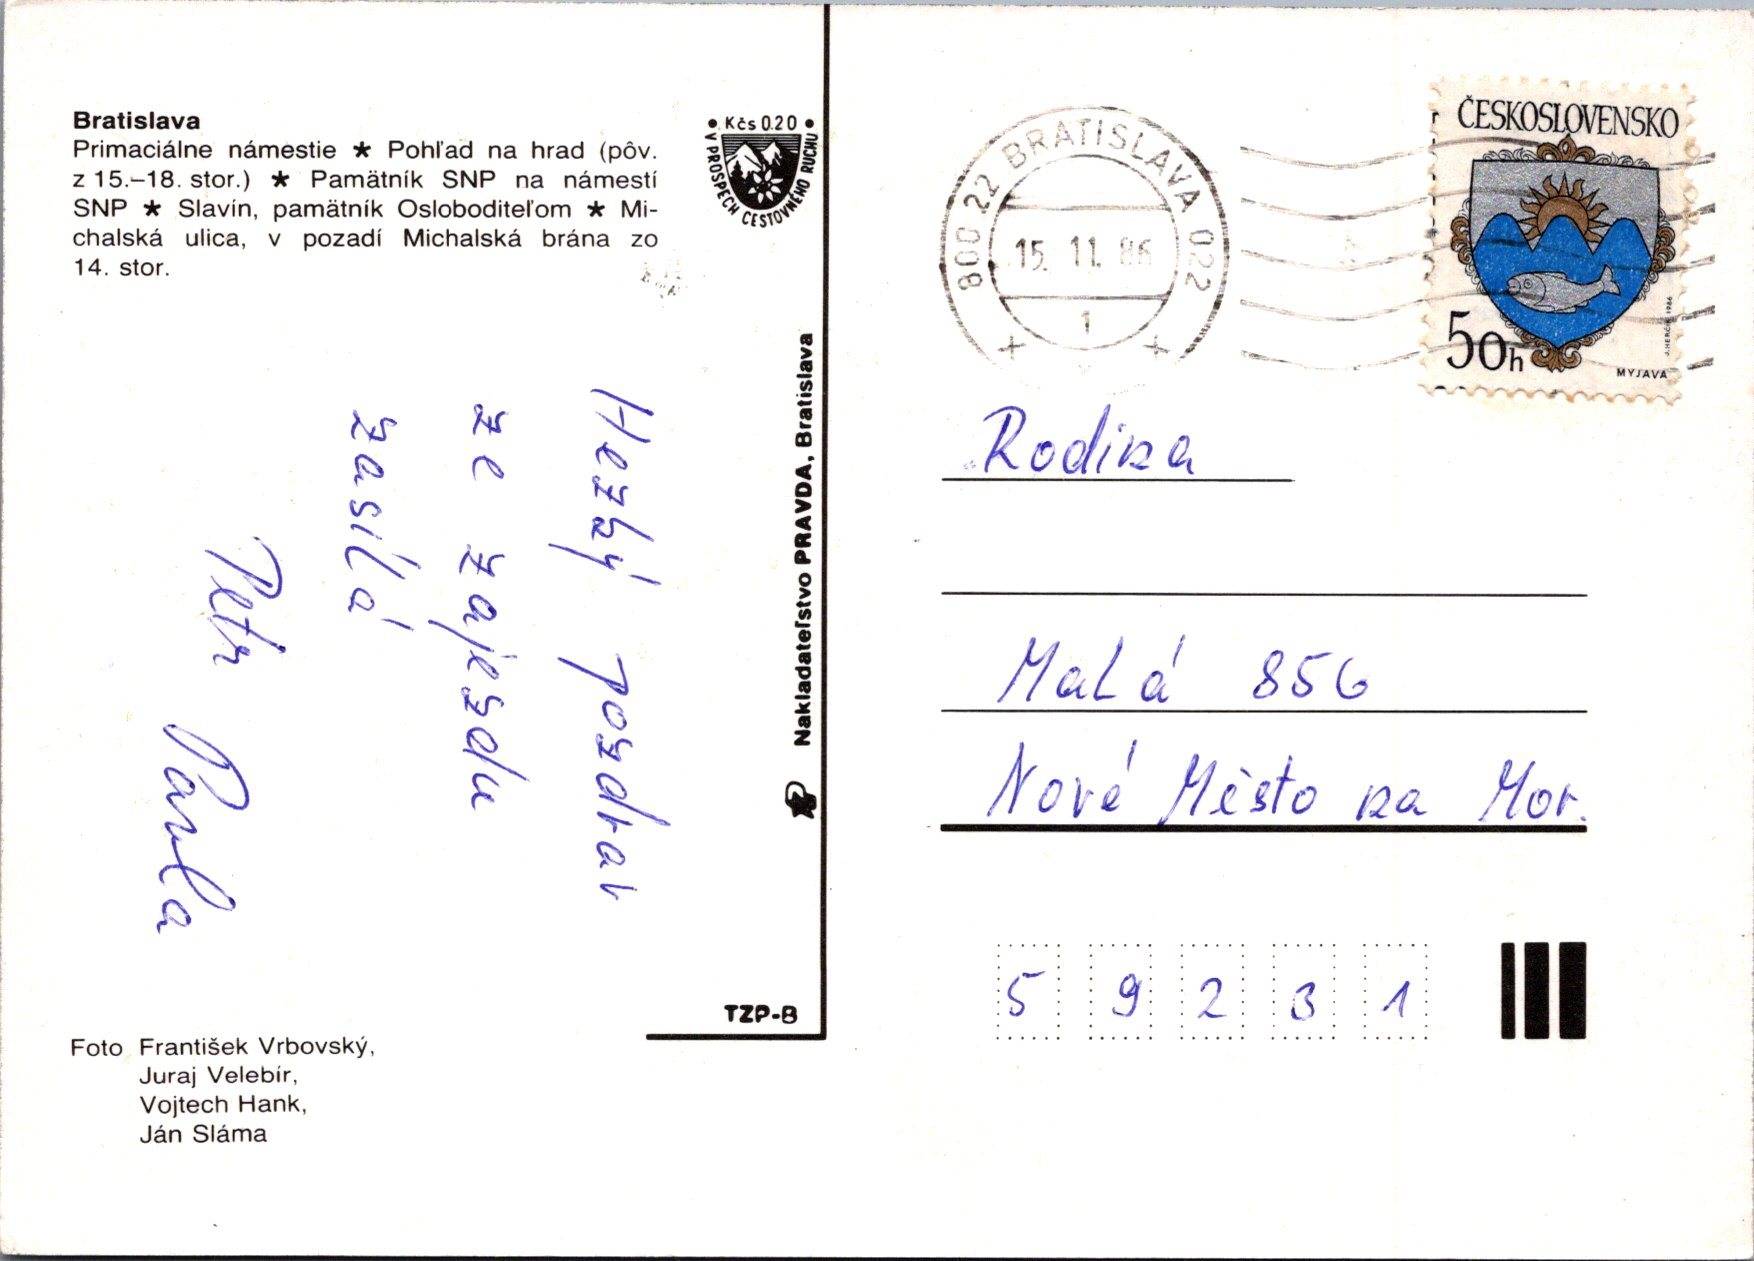 Bratislava
Primaciálne námestie ★ Pohľad na hrad (pôv.
z 15.–18. stor.) ★ Pamätník SNP na námestí
SNP ★ Slavín, pamätník Osloboditeľom ★ Mi-
chalská ulica, v pozadí Michalská brána zo
14. stor.
• Kčs 0.20 •
V PROSPECH CESTOVNÉHO RUCHU
Hezký pozdrav
ze zajezdu
zasílá
Petr
Pavla
Nakladateľstvo PRAVDA, Bratislava
TZP-8
Foto František Vrbovský,
Juraj Velebír,
Vojtech Hank,
Ján Sláma
800 22 BRATISLAVA 022
15. 11. 86
1
ČESKOSLOVENSKO
50h
J. HERČÍK 1986
MYJAVA
Rodina
Malá 856
Nové Město na Mor.
59231